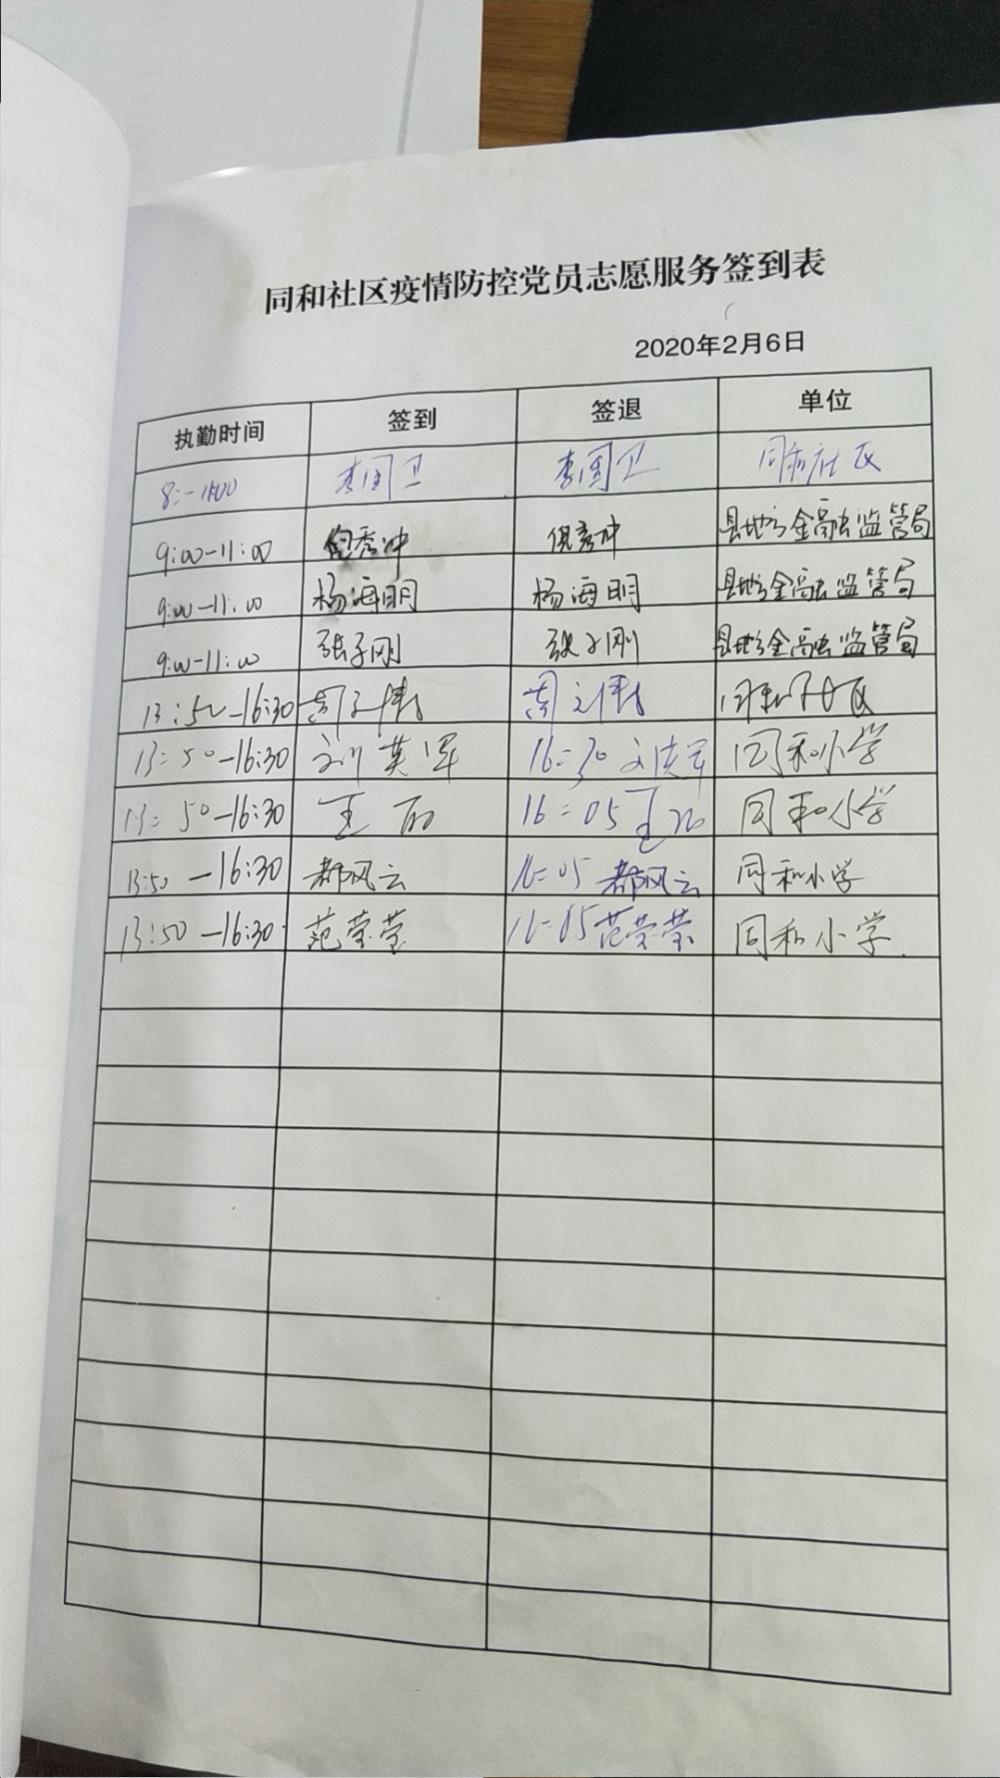 同和社区疫情防控党员志愿服务签到表
2020年2月6日
执勤时间 签到 签退 单位
8:-11:00 李国卫 李国卫 同和社区
9:00-11:00 倪秀冲 倪秀冲 县地方金融监管局
9:00-11:00 杨海明 杨海明 县地方金融监管局
9:00-11:00 张子刚 张子刚 县地方金融监管局
13:50-16:30 周文伟 周文伟 同和社区
13:50-16:30 刘英军 16:30 刘英军 同和小学
13:50-16:30 王丽 16:05 王丽 同和小学
13:50-16:30 都风云 16:05 都风云 同和小学
13:50-16:30 范莹莹 16:05 范莹莹 同和小学